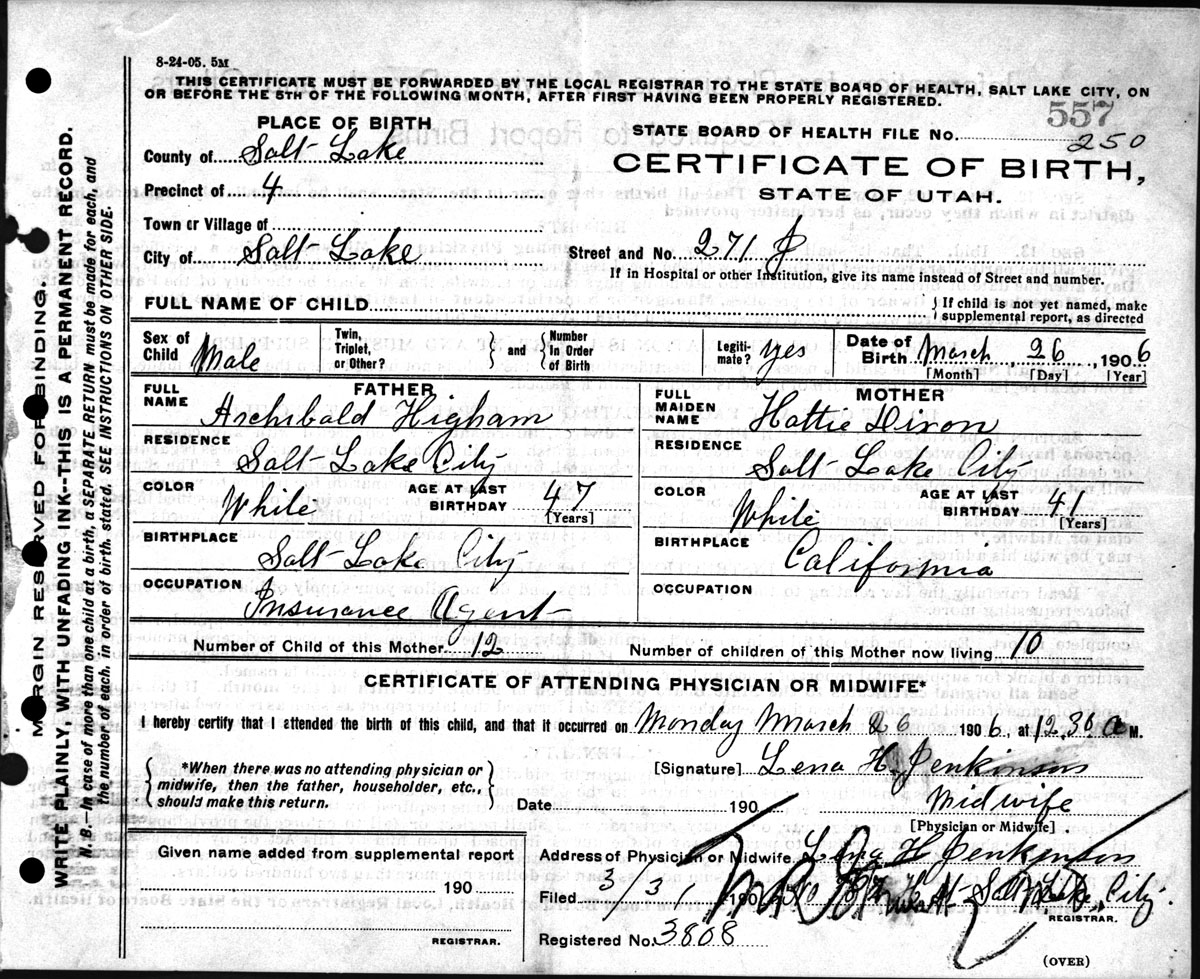 8-24-05. 5M
THIS CERTIFICATE MUST BE FORWARDED BY THE LOCAL REGISTRAR TO THE STATE BOARD OF HEALTH, SALT LAKE CITY, ON
OR BEFORE THE 5TH OF THE FOLLOWING MONTH, AFTER FIRST HAVING BEEN PROPERLY REGISTERED.
557
PLACE OF BIRTH
STATE BOARD OF HEALTH FILE No. 250
County of Salt Lake
CERTIFICATE OF BIRTH,
Precinct of 4
STATE OF UTAH.
Town or Village of
City of Salt Lake
Street and No. 271 J
If in Hospital or other Institution, give its name instead of Street and number.
FULL NAME OF CHILD
If child is not yet named, make
supplemental report, as directed
Sex of Child Male
Twin, Triplet, or Other?
and
Number in Order of Birth
Legiti- mate? yes
Date of Birth March 26, 1906
[Month] [Day] [Year]
FATHER
FULL NAME Archibald Higham
RESIDENCE Salt Lake City
COLOR White
AGE AT LAST BIRTHDAY 47
[Years]
BIRTHPLACE Salt Lake City
OCCUPATION Insurance Agent
MOTHER
FULL MAIDEN NAME Hattie Dixon
RESIDENCE Salt Lake City
COLOR White
AGE AT LAST BIRTHDAY 41
[Years]
BIRTHPLACE California
OCCUPATION
Number of Child of this Mother 12
Number of children of this Mother now living 10
CERTIFICATE OF ATTENDING PHYSICIAN OR MIDWIFE*
I hereby certify that I attended the birth of this child, and that it occurred on Monday March 26 1906, at 12,30 a M.
*When there was no attending physician or
midwife, then the father, householder, etc.,
should make this return.
[Signature] Lena H. Jenkinson
Date 190
Midwife
[Physician or Midwife]
Given name added from supplemental report
190
REGISTRAR.
Address of Physician or Midwife Lena H Jenkinson
Filed 3/31 190 Salt Lake City.
REGISTRAR.
Registered No. 3808
(OVER)
MARGIN RESERVED FOR BINDING
WRITE PLAINLY, WITH UNFADING INK--THIS IS A PERMANENT RECORD.
N.B.--In case of more than one child at a birth, a SEPARATE RETURN must be made for each, and
the number of each, in order of birth, stated. SEE INSTRUCTIONS ON OTHER SIDE.